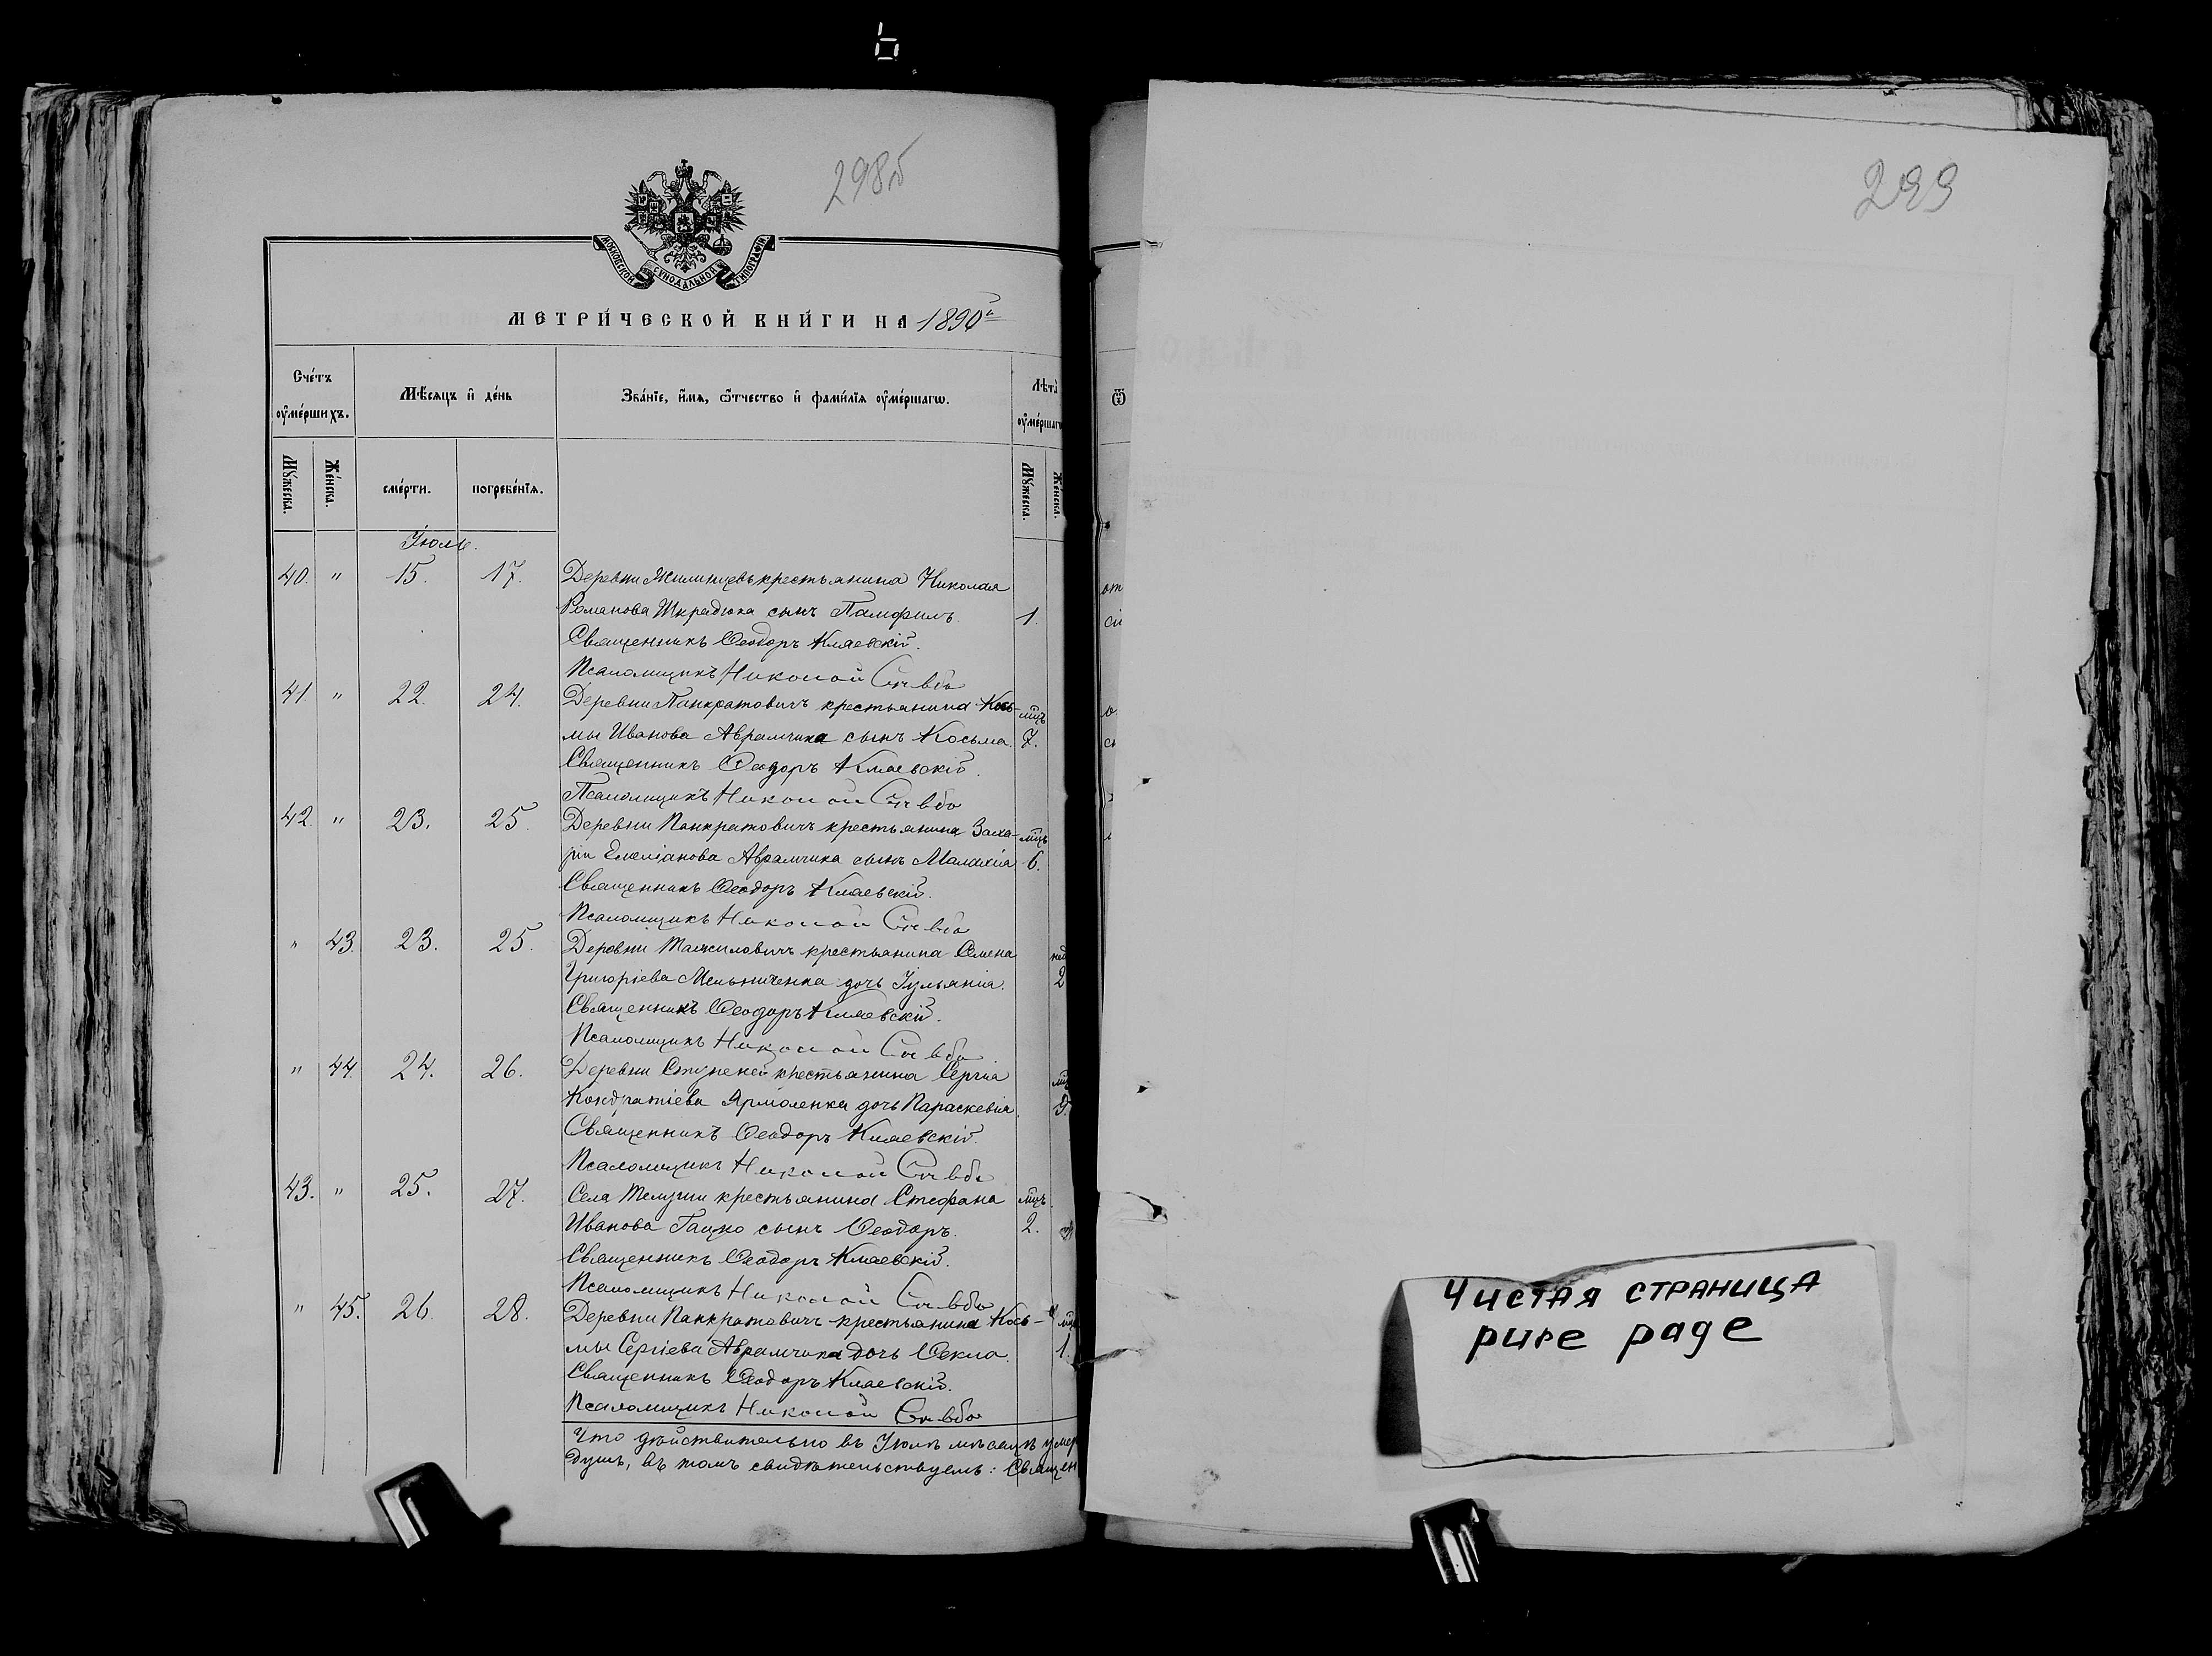 298б
МОСКОВСКОЙ СѴНОДАЛЬНОЙ ТИПОГРАФІИ.
МЕТРИ́ЧЕСКОЙ КНИ́ГИ НА 1890й
Сче́тъ оу҆ме́ршихъ.
Мѣ́сяцъ и҆ де́нь
Зва́нїе, и҆́мѧ, ѻ҆́тчество и҆ фами́лїѧ оу҆ме́ршагѡ.
Лѣта̀ оу҆ме́ршагѡ
Мꙋ́жеска.
Же́нска.
сме́рти.
погребе́нїѧ.
Мꙋ́жеска.
Же́нска.
Іюль.
40. " 15. 17. Деревни Жилинцевъ крестьянина Николая
Романова Шкрадюка сынъ Памфилъ. 1.
Священникъ Ѳеодоръ Кляевскій.
Псаломщикъ Николай Савва
41 " 22. 24. Деревни Панкратовичъ крестьянина Кось- мцъ
мы Иванова Аврамчика сынъ Косьма. 7.
Священникъ Ѳеодоръ Кляевскій.
Псаломщикъ Николай Савва
42. " 23. 25. Деревни Панкратовичъ крестьянина Заха- мцъ
ріи Емеліанова Аврамчика сынъ Малахія 6.
Священникъ Ѳеодоръ Кляевскій.
Псаломщикъ Николай Савва
" 43 23. 25. Деревни крестьянина Семена нед
Григоріева Мельниченка дочь Іульянія. 2
Священникъ Ѳеодоръ Кляевскій.
Псаломщикъ Николай Савва
" 44 24. 26. Деревни Ступеней крестьянина Сергія
Кондратіева Ярмоленка дочь Параскевія. 9.
Священникъ Ѳеодоръ Кляевскій.
Псаломщикъ Николай Савва
43. " 25. 27. Села Телуши крестьянина Стефана мцъ.
Иванова Гацко сынъ Ѳеодоръ. 2.
Священникъ Ѳеодоръ Кляевскій.
Псаломщикъ Николай Савва
" 45. 26 28. Деревни Панкратовичъ крестьянина Кось-
мы Сергіева Аврамчика дочь Ѳекла. 1.
Священникъ Ѳеодоръ Кляевскій.
Псаломщикъ Николай Савва
Что дѣйствительно въ Іюлѣ мѣсяцѣ умер
душъ, въ томъ свидѣтельствуемъ: Священ
299
Чистая страница
pure page